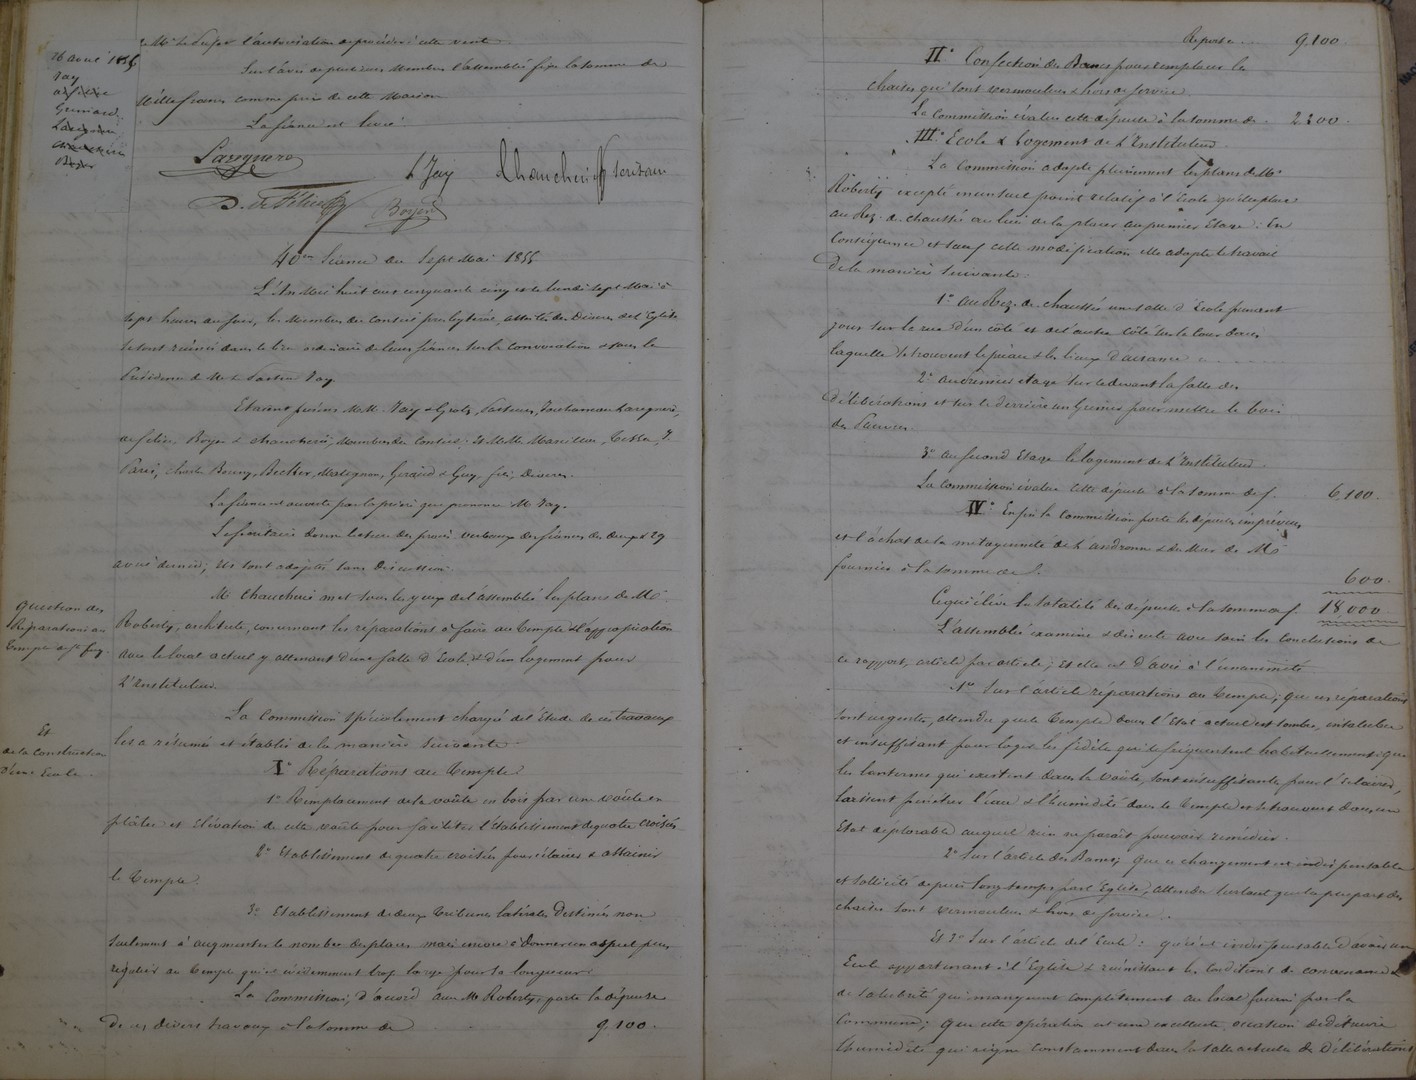 16 avril 1855
Jay
Boyer
à Mr le Préfet l'autorisation de procéder à cette vente
Sur l'avis de plusieurs Membres l'assemblée fixe la somme de
Mille francs comme prix de cette Maison
La séance est levée
Lavergnere
L Jay
Boyer
40me Séance du Sept Mai 1855
L'An Mil huit cent cinquante cinq et le lundi sept Mai à
sept heures du soir, les Membres du Conseil presbytéral, assistés des Diacres de l'Eglise
se sont réunis dans le lieu ordinaire de leurs séances sur la convocation & sous la
Présidence de Mr le Pasteur Jay
Etaient présens MM. Jay & Grotz, Pasteurs,
de félice, Boyer & Chaucherie, Membres du Conseil; et MM.
Paris, Charle Bourg, Becker, Matignon, Gerard & Guy, fils, Diacres.
La séance est ouverte par la prière que prononce M. Jay.
Le secrétaire donne lecture des procès verbaux des séances des deux & 29
avril dernier; ils sont adoptés sans discussion.
Question des
Réparations au
Temple de Ste foy
Mr Chaucherie met sous les yeux de l'assemblée les plans de Mr
Roberty, architecte, concernant les réparations à faire au Temple & l'appropriation
avec le local actuel y attenant d'une salle d'Ecole, & d'un logement pour
L'Instituteur.
Et
de la Construction
d'une Ecole.
La Commission spécialement chargée de l'Etude de ces travaux
les a résumés et établis de la manière suivante
I° Réparations au Temple
1° Remplacement de la voûte en bois par une voûte en
plâtre et Elévation de cette voûte pour faciliter l'établissement de quatre croisées
2° Etablissement de quatre croisées pour éclairer & assainir
le Temple.
3° Etablissement de deux Tribunes latérales destinées non
seulement à augmenter le nombre des places mais encore à donner un aspect plus
régulier au Temple qui est évidemment trop large pour sa longueur
La Commission, d'accord avec Mr Roberty, porte la dépense
de ces divers travaux à la somme de 9.100.
Report 9.100
II° Confection des Bancs pour remplacer les
chaises qui sont vermoulues & hors de service
La Commission évalue cette dépense à la somme de 2.200.
III° Ecole & Logement de L'Instituteur
La Commission adopte pleinement les plans de Mr
Roberty excepté en un seul point relatif à l'école qu'elle place
au Rez-de-chaussée au lieu de la placer au premier Etage: En
Conséquence et sauf cette modification elle adopte le travail
de la manière suivante:
1° au Rez-de-chaussée une salle d'Ecole prenant
jour sur la rue d'un côté et de l'autre côté sur la Cour dans
laquelle se trouvent le préau & les lieux d'aisance
2° au premier étage sur le devant la salle des
délibérations et sur le derrière un grenier pour mettre le bois
des Pauvres
3° au second Etage le logement de L'Instituteur
La Commission évalue cette dépense à la somme de f. 6.100.
IV° Enfin la Commission porte les dépenses imprévues
et l'achat de la mitoyenneté de l'androne & du Mur de Mr
fournier à la somme de f. 600.
Ce qui élève la totalité des dépenses à la somme de f. 18000.
L'assemblée examine & discute avec soin les conclusions de
ce rapport, article par article; et elle est d'avis à l'unanimité
1° Sur l'article réparations au Temple; que ces réparations
sont urgentes, attendu que le Temple dans l'Etat actuel est sombre, insalubre
et insuffisant pour loger les fidèles qui le fréquentent habituellement: que
les lanternes qui existent dans la voûte, sont insuffisantes pour l'éclairer,
laissent pénétrer l'eau & l'humidité dans le Temple et se trouvent dans un
Etat déplorable auquel rien ne paraît pouvoir remédier.
2° Sur l'article des Bancs; que ce changement est indispensable
et sollicité depuis longtemps par l'Eglise, attendu surtout que la plupart des
chaises sont vermoulues & hors de service.
Et 3° Sur l'article de l'Ecole: qu'il est indispensable d'avoir une
Ecole appartenant à l'Eglise & réunissant les Conditions de convenance &
de salubrité qui manquent complètement au local fourni par la
Commune; que cette opération est une excellente occasion de détruire
l'humidité qui règne constamment dans la salle actuelle des Délibérations